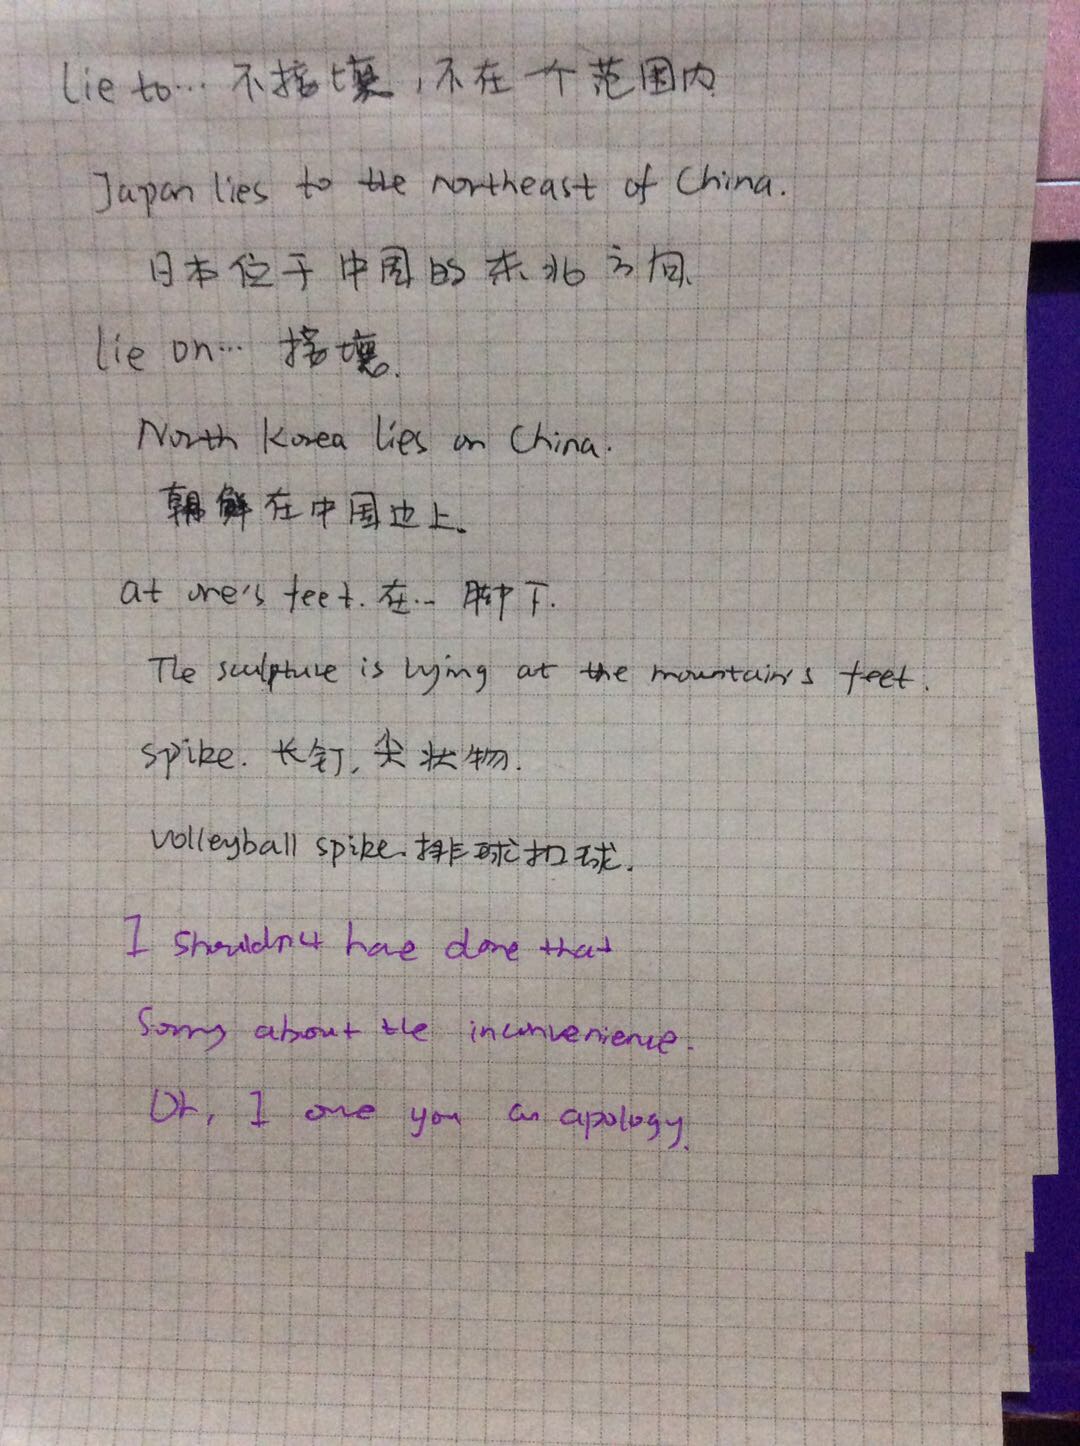 lie to... 不接壤，不在一个范围内
Japan lies to the northeast of China.
日本位于中国的东北方向
lie on... 接壤.
North Korea lies on China.
朝鲜在中国边上.
at one's feet. 在... 脚下.
The sculpture is lying at the mountain's feet.
spike. 长钉, 尖状物.
volleyball spike. 排球扣球.
I shouldn't have done that
Sorry about the inconvenience.
Oh, I owe you an apology.